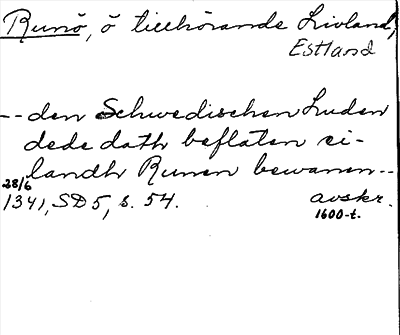 Runö, ö tillhörande Livland,
Estland
-- den Schwedischen Luden
dede dath beflaten ei-
landh Runen bewanen --
28/6
1341, SD 5, s. 54. avskr.
1600-t.